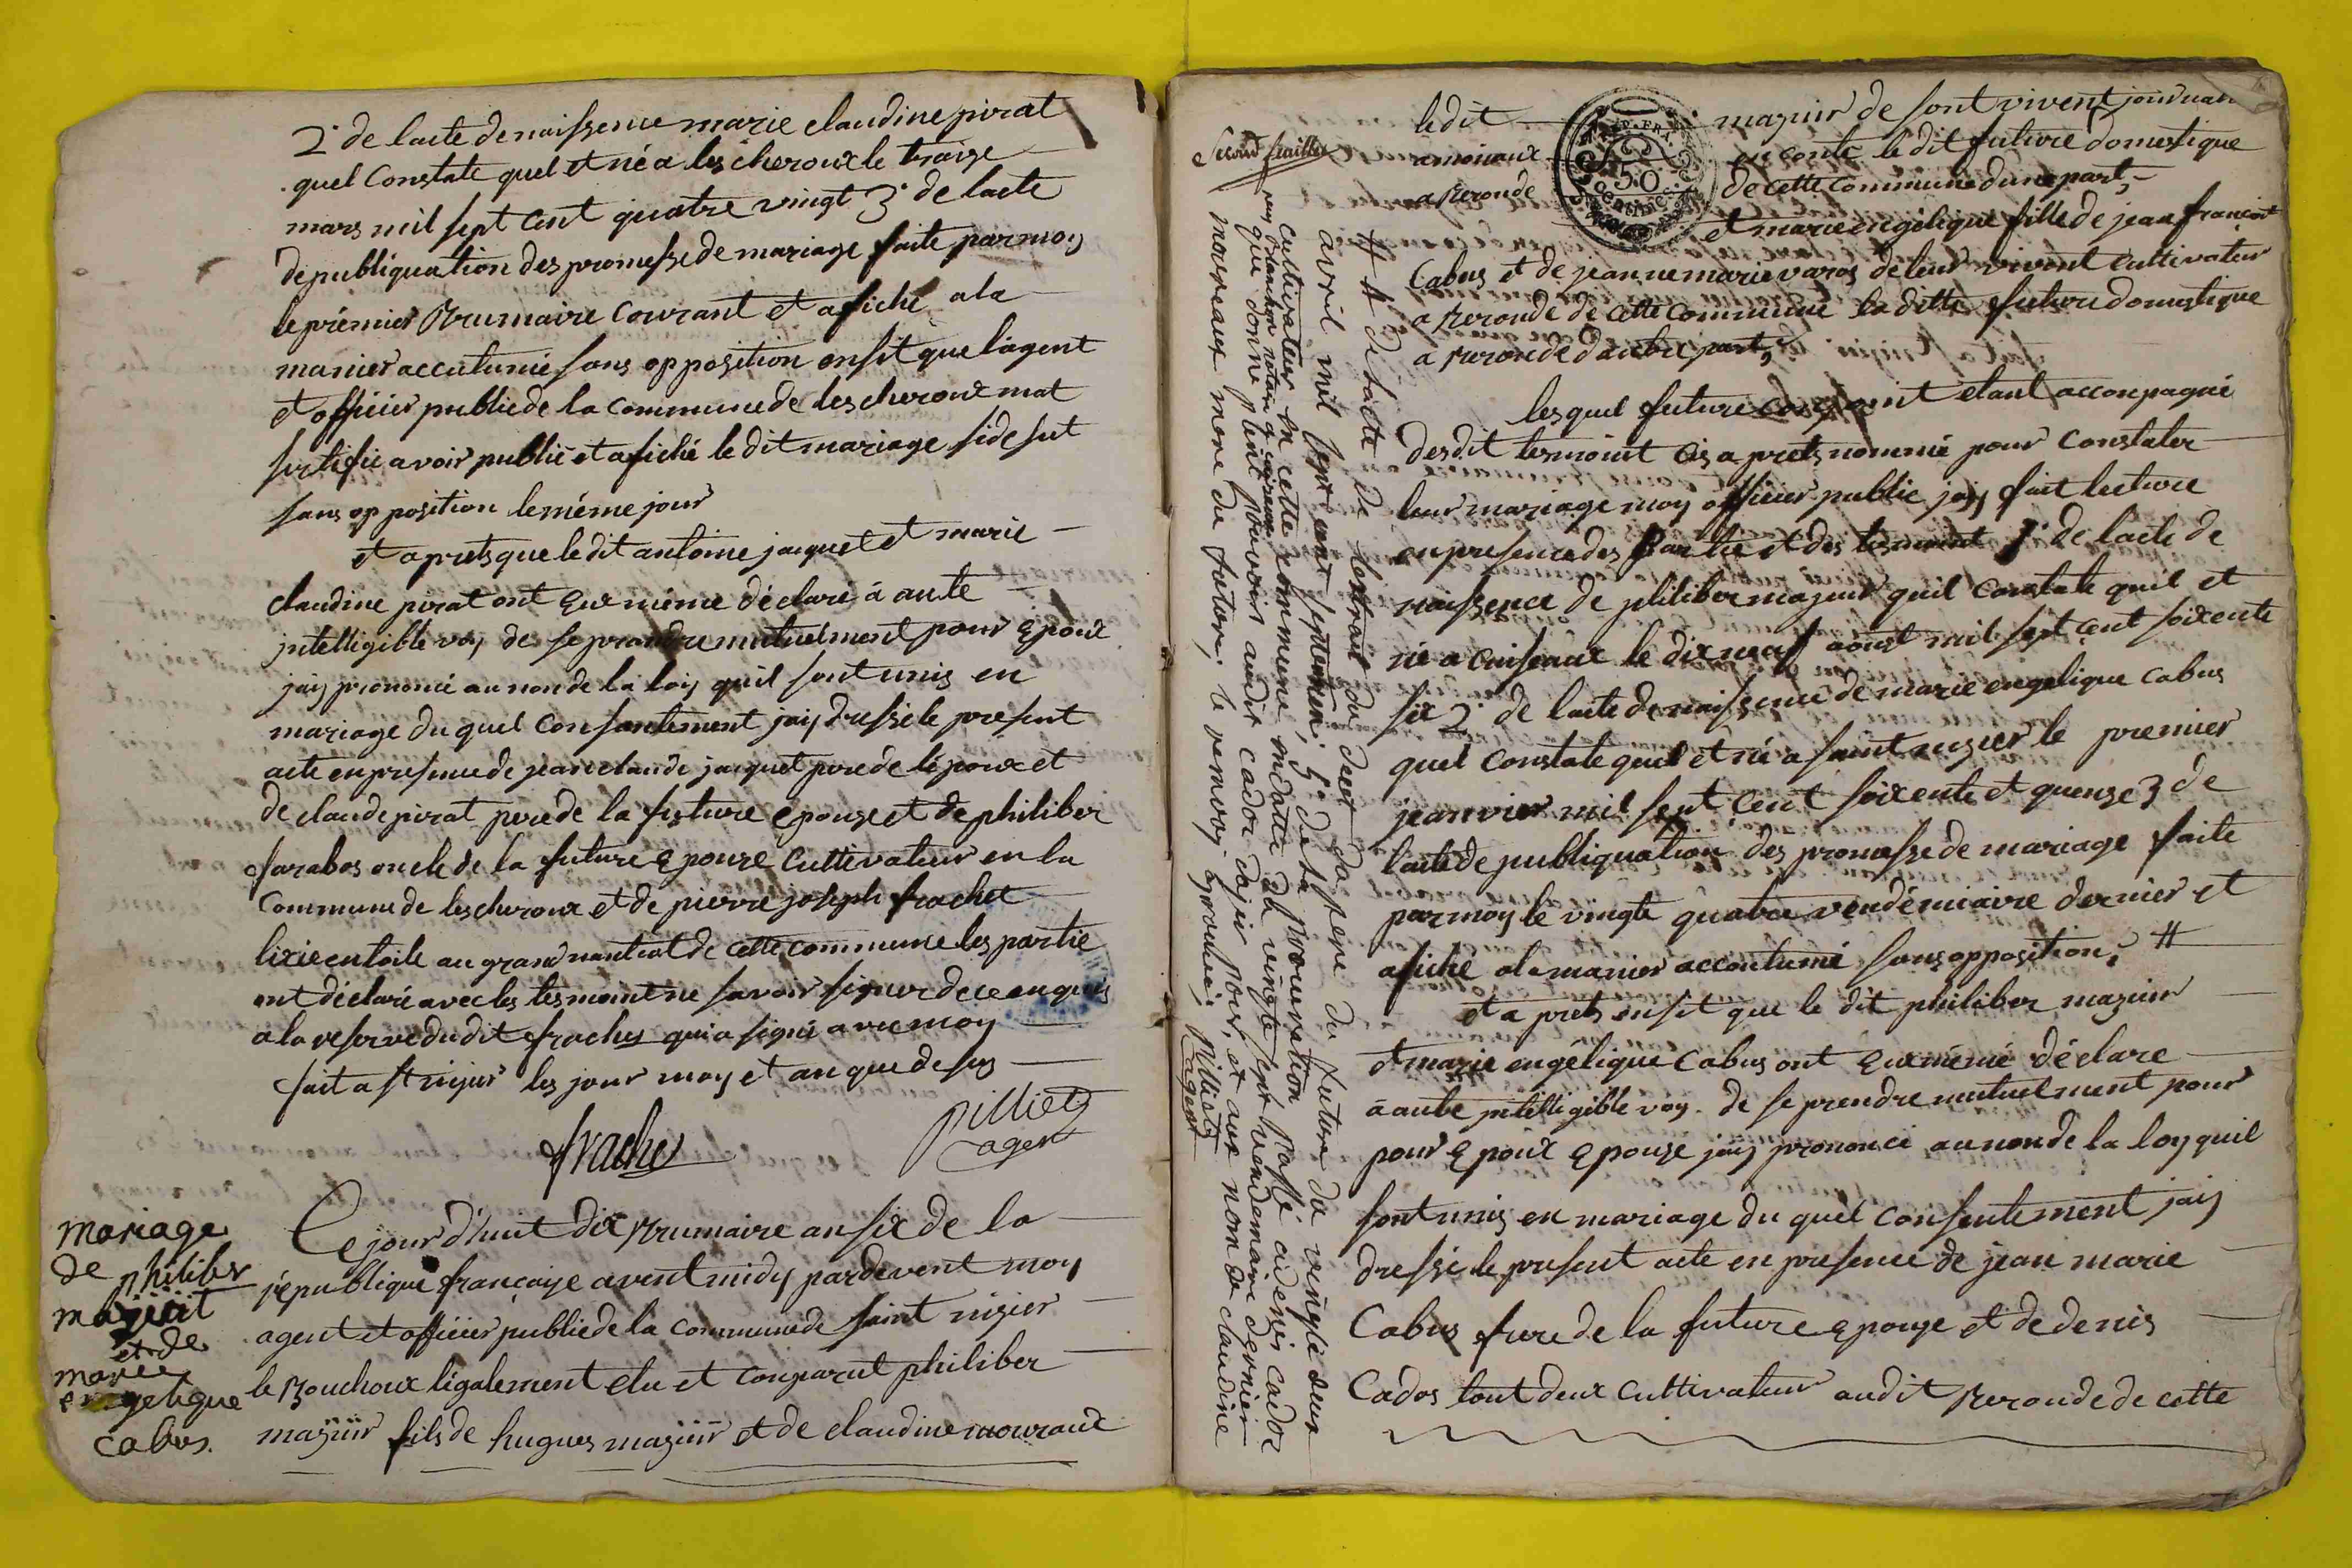 2° de lacte denaissence marie claudine pirat
quel Constate quel et né a les cheroux le traize
mars mil sept cent quatre vingt 3° de lacte
de publiquation des promesse de mariage faite parmoy
le prémier Brumaire Courant et afiché ala
manier accutumé sans opposition ensit que lagent
et officier publicde la Commune de lescheroux mat
sertifié avoir publié et afiché le dit mariage side sut
sans opposition lemême jour
et aprets que le dit antoine jacquet et marie
claudine pirat ont Eux même déclaré á aute
jntelligible voy de se prandre mutuelment pour Epoux
jaij prononcé au nonde la loij quil sont unis en
mariage du quel Consantement jaij dressé le present
acte enpresence de jean claude jacquet perede lépoux et
de claude pirat perede la future Epouze et de philiber
farabos oncle de la future Epouze Cultivateur en la
Commune de lescheroux et de pierre joseph frachet
lixie entoile au grand nantuat de cette commune les partie
ont déclaré avec les tesmoint ne savoir signer de ce enquis
a la reserve du dit frachey quia signé avec moy
fait a st nizier les jour moy et an que desus
frachey
pilliet
agent
mariage
de philiber
maziiit
et de
mariee
engelique
cabus.
Cejour d'huit dix Brumaire ansix de la
république française avent midy pardevent moy
agent et officier publicde la communede saint nizier
le Bouchoux légalement elu et Conparut philiber
maziiir fils de hugues maziiir et de claudine mouraux
Second feaillet
ledit mazuir de sont vivent journalie
amoinaux en conte le dit future domestique
a Beronde de cette commune dune part,
REP. FRA.
50
centimes
et marie engélique fille de jean francoit
Cabus et de jeanne marie varos de leur vivent cultivateur
a Beronde de cette commune la ditte future domestique
a Beronde dautre part,
lesquel future conjoint etant accompagné
desdit tesmoint cis a prets nommé pour Constater
leur mariage moy officier public jaij fait lecture
enpresence des Partie et des tesmoint 1° de lacte de
naissence de philiber mazuir quil Constate quil et
né a cuiseaux le dix neuf aoust mil sept cent soixente
six 2° de lacte de naissence de marie engelique cabus
quel Constate quel et né a saint nizier le premier
jeanvier mil sept cent soixente et quenze 3 de
lactede publiquation des promesse de mariage faite
parmoy le vingte quatre vendémiaire dernier et
afiché ala manier accoutumé sans opposition, #
et a prets ensit que le dit philiber mazuir
et marie engêlique Cabus ont Eux mémé déclare
á aute jntelligible voy. de se prendre mutuelment pour
pour Epoux Epouze jaij prononcé au nonde la loy quil
sont unis en mariage du quel Consentement jaij
dressé le present acte en presence de jean marie
Cabus frere de la future Epouze et de denis
Cados tout deux Cultivateur audit Beronde de cette
# 4° de lacte de lextrait du decet du pere du future du vingtie deux
avril mil sept cent septente 5° de la procuration passé a denis cador
cultivateur en cette commune en datte du vingte sept vendemiaire dernier
qui donne plent pouvoir audit cador dajir pour et aux nom de claudine
moureaux mere du future. le renvoy aprouvé; pilliet
agent